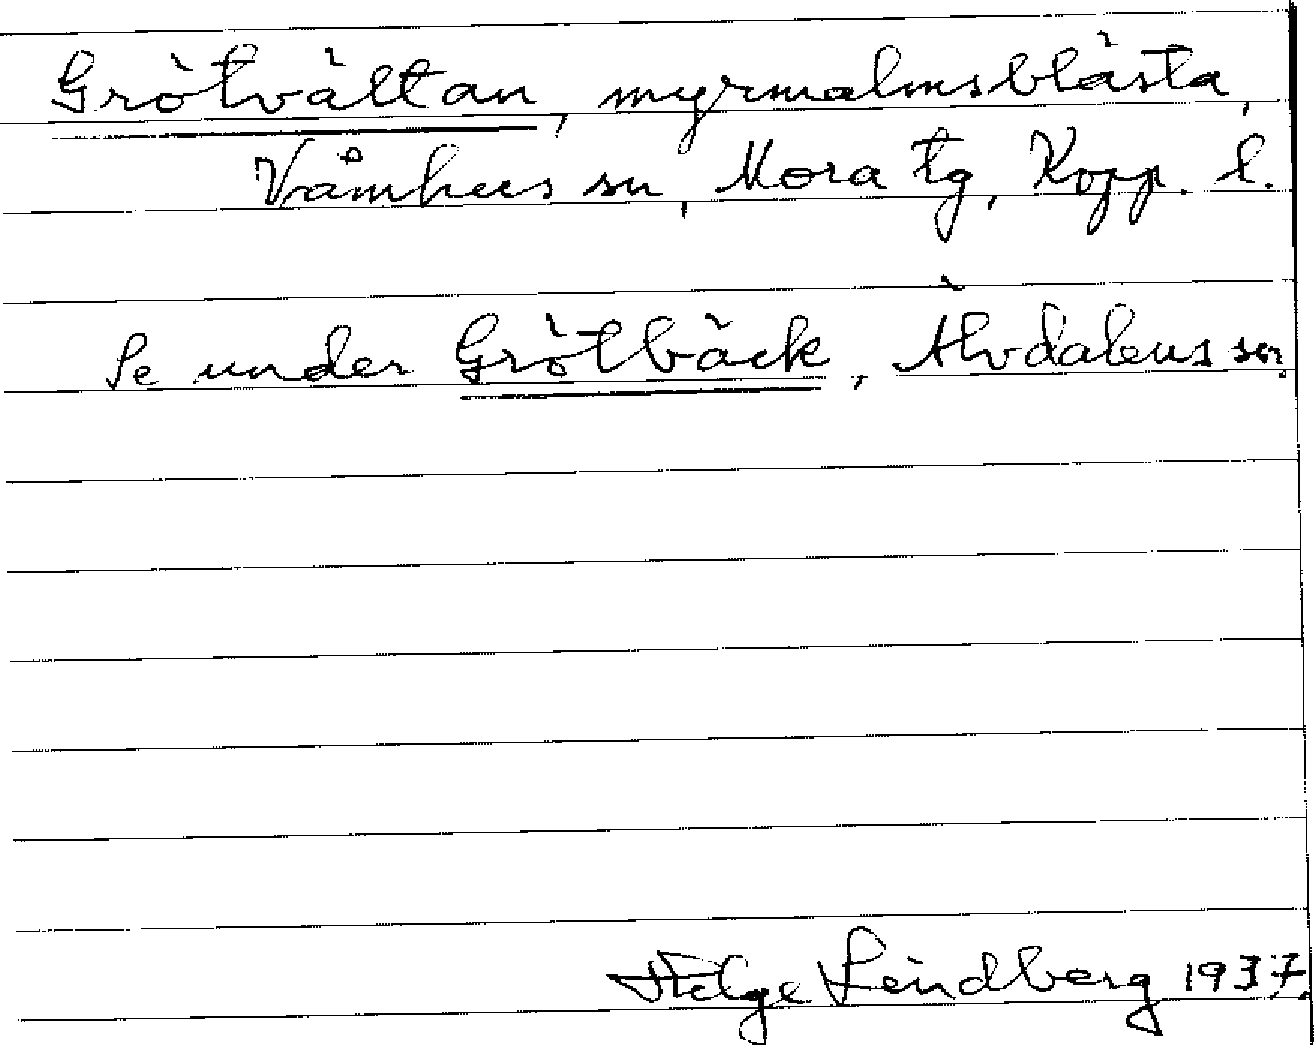 Grötvältan, myrmalmsblästa,
Våmhus sn, Mora tg, Kopp. l.
Se under Grötbäck, Älvdalens sn.
Helge Lindberg 1937.